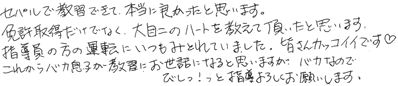 セパルで教習できて、本当に良かったと思います。
免許取得だけでなく、大自二のハートを教えて頂いたと思います。
指導員の方の運転にいつもみとれていました。皆さんカッコイイです♡
これからバカ息子が教習にお世話になると思いますが、バカなので
びしっ！っと指導よろしくお願いします。